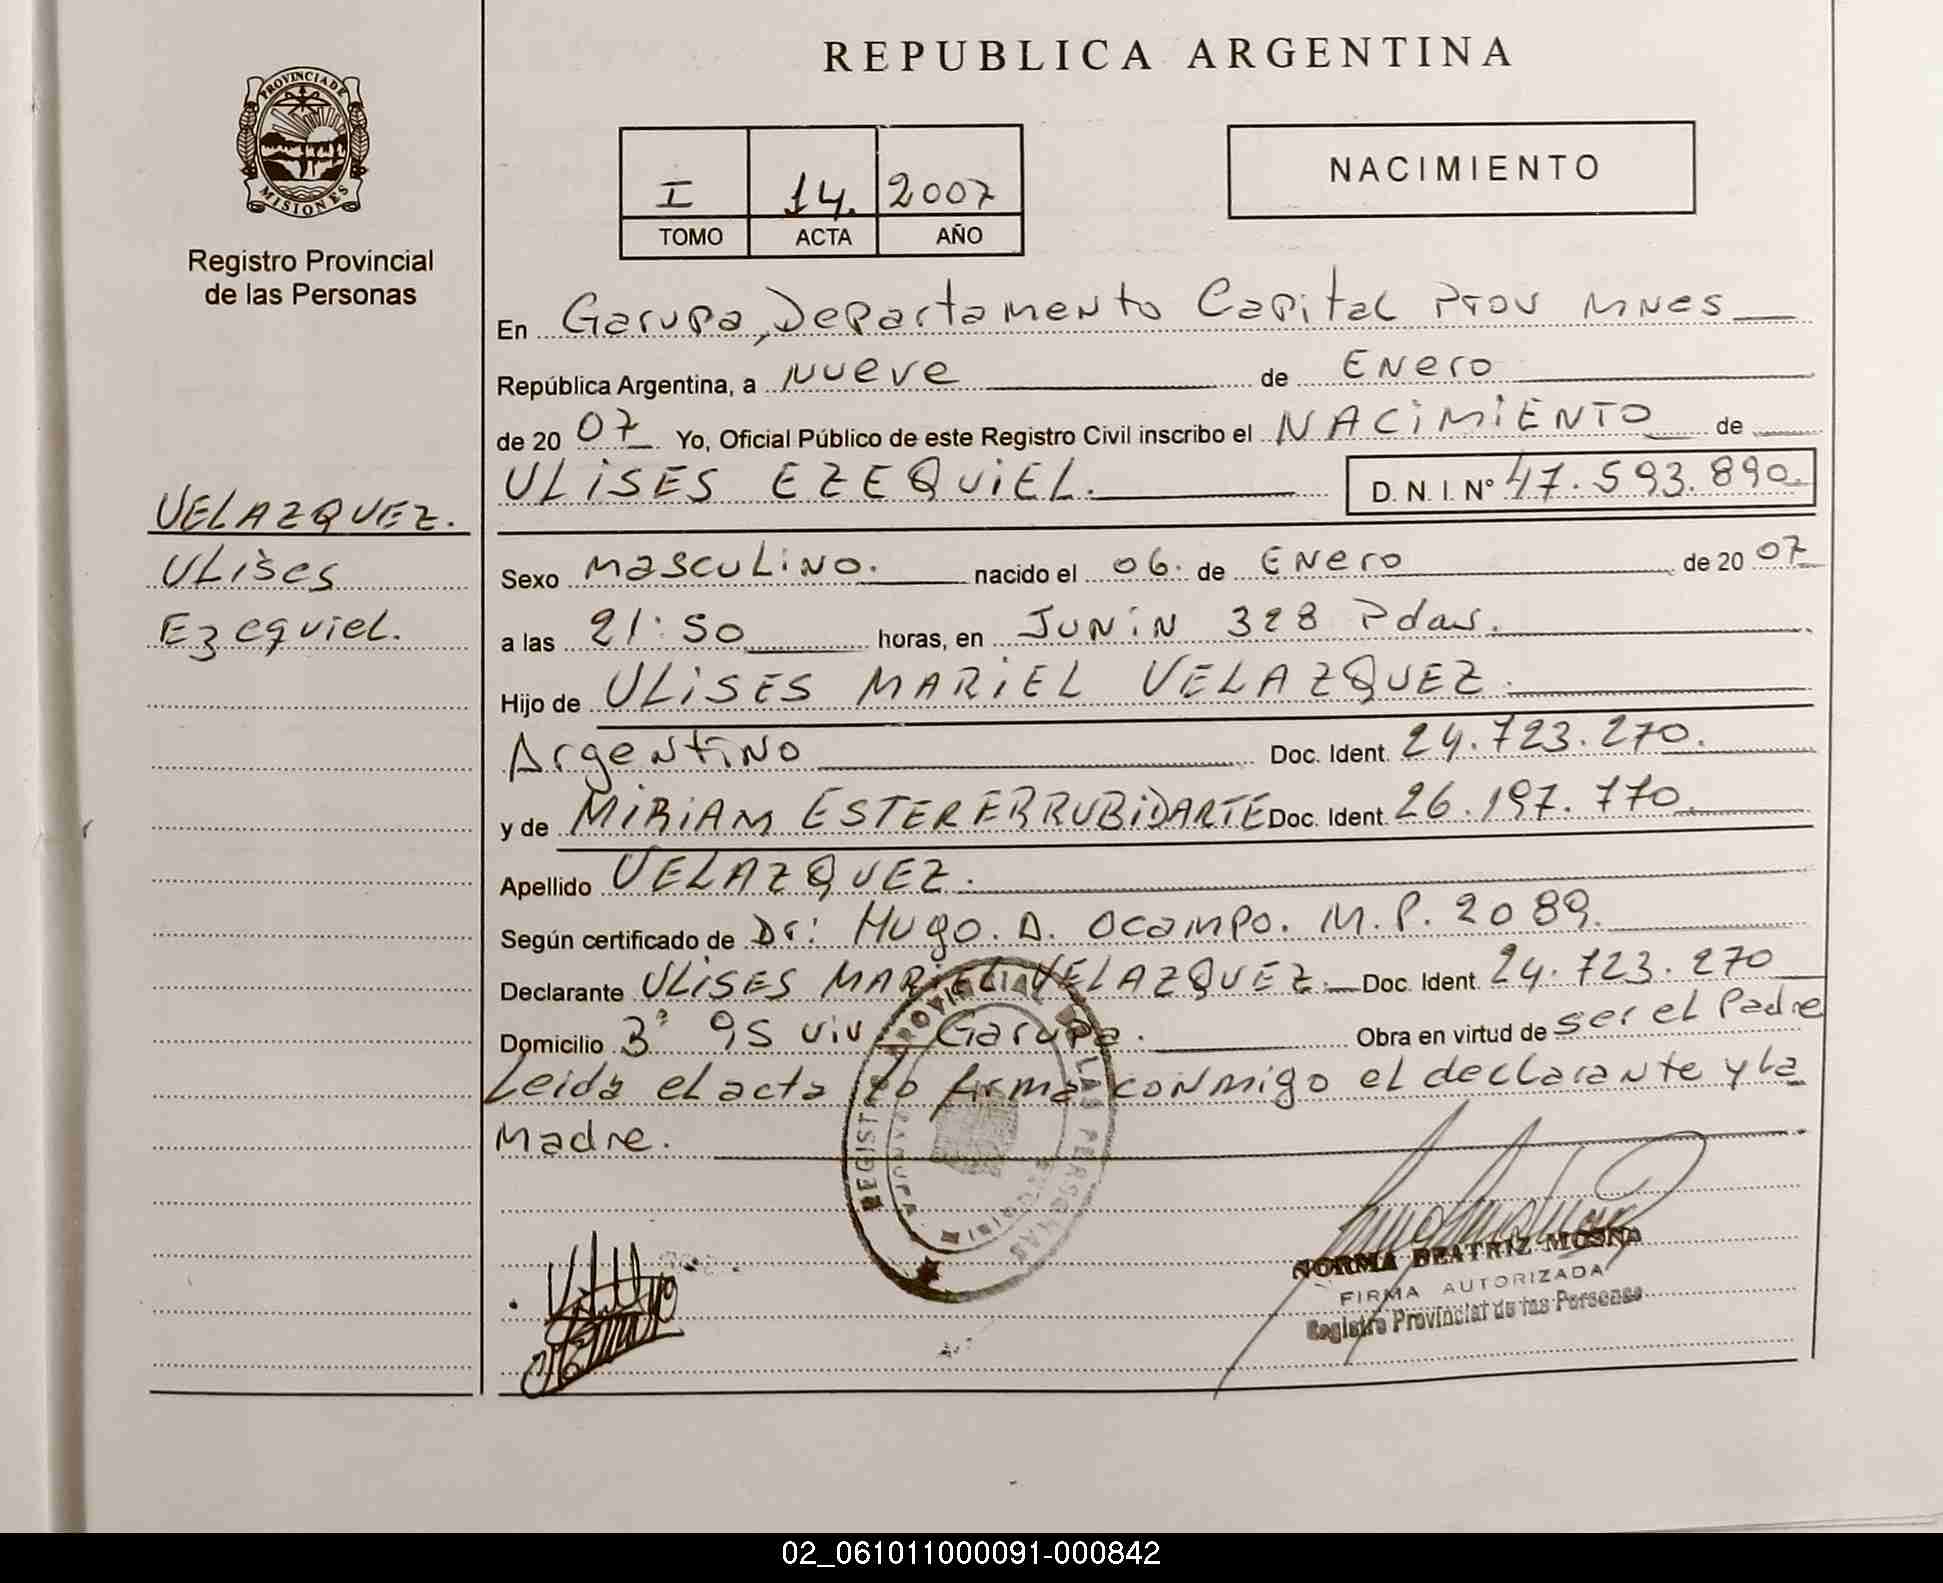 REPUBLICA ARGENTINA
PROVINCIA DE MISIONES
Registro Provincial
de las Personas
I 14. 2007
TOMO ACTA AÑO
NACIMIENTO
En Garupa, Departamento Capital Prov Mnes
República Argentina, a nueve de Enero
de 20 07 Yo, Oficial Público de este Registro Civil inscribo el NACIMIENTO de
ULISES EZEQUIEL. D. N. I. Nº 47.593.890.
VELAZQUEZ.
Ulises
Ezequiel.
Sexo masculino. nacido el 06. de Enero de 20 07
a las 21:50 horas, en Junin 328 Pdas.
Hijo de ULISES MARIEL VELAZQUEZ.
Argentino Doc. Ident. 24.723.270.
y de MIRIAM ESTER ERRUBIDARTE Doc. Ident. 26.197.770.
Apellido VELAZQUEZ.
Según certificado de Dr: Hugo. D. Ocampo. M.P. 2089.
Declarante ULISES MARIEL VELAZQUEZ Doc. Ident. 24.723.270
Domicilio 3ª 95 viv Garupa. Obra en virtud de ser el Padre
Leida el acta lo firma conmigo el declarante y la
Madre.
REGISTRO PROVINCIAL DE LAS PERSONAS
GARUPA
NORMA BEATRIZ MOSNA
FIRMA AUTORIZADA
Registro Provincial de las Personas
02_061011000091-000842